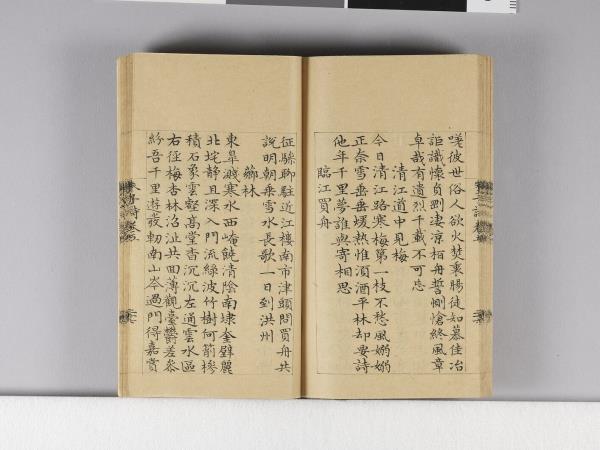 嗟彼世俗人欲火焚衷腸徒知慕佳冶
詎識懷貞剛凄涼柏舟誓惻愴終風章
卓哉有遺烈千載不可忘
清江道中見梅
今日清江路寒梅第一枝不愁風嫋嫋
正奈雪垂垂煖熱惟須酒平林却要詩
他年千里夢誰與寄相思
臨江買舟
征驂聊駐近江樓南市津頭問買舟共
說明朝乗雪水長歌一日到洪州
薌林
東皐濺寒水西崦饒清陰南埭奎璧麗
北垞静且深入門流緑波竹樹何箾槮
積石象雲壑高堂杳沉沉左通雲水區
右徑梅杏林沿沚共回薄觀臺鬱差參
紛吾千里遊發軔南山岑過門得嘉賞